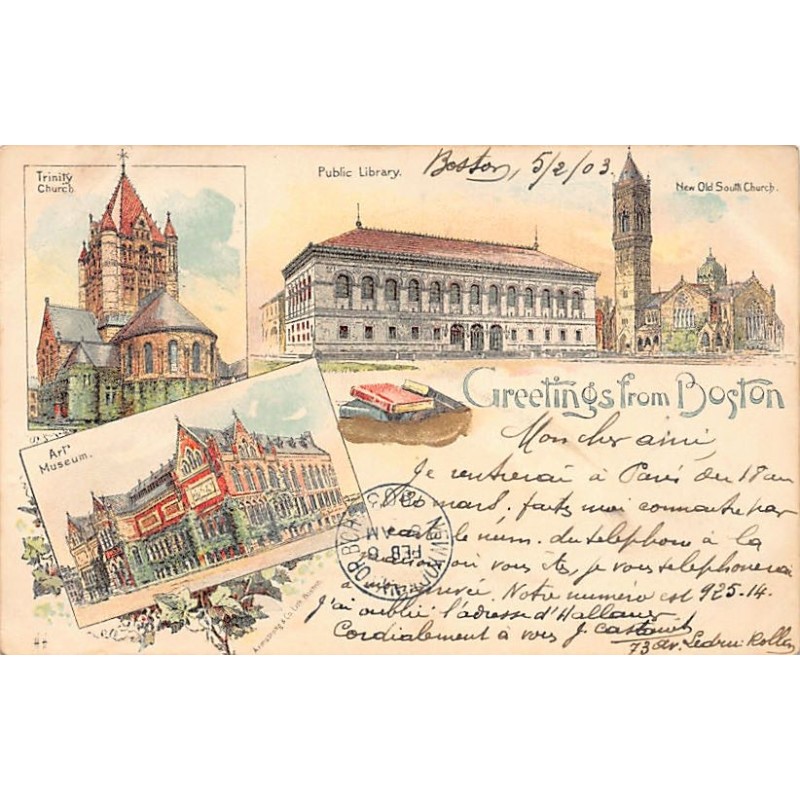 Trinity
Church
Public Library.
Boston, 5/2/03
New Old South Church.
Greetings from Boston
Art
Museum.
Mon cher ami
Je rentrerai à Paris du 18 au
20 mars. faites moi connaitre par
carte le num. du telephone à la
où vous êtes, je vous telephonerai
à mon arrivée. Notre numéro est 925-14.
J'ai oublié l'adresse d'Hallauer
Cordialement à vous J. Castanet
73 av. Ledru-Rollin
FEB 6
AM
Armstrong & Co. Lith. Boston.